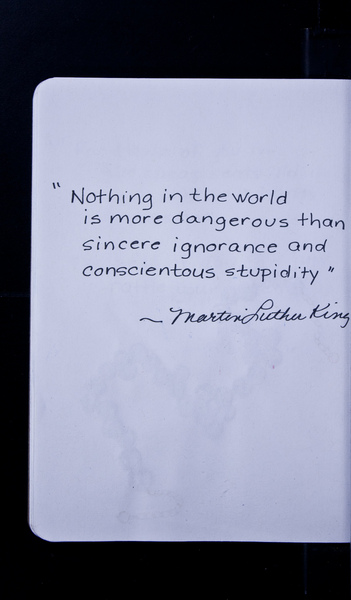 " Nothing in the world
is more dangerous than
sincere ignorance and
conscientous stupidity "
~ Martin Luther King